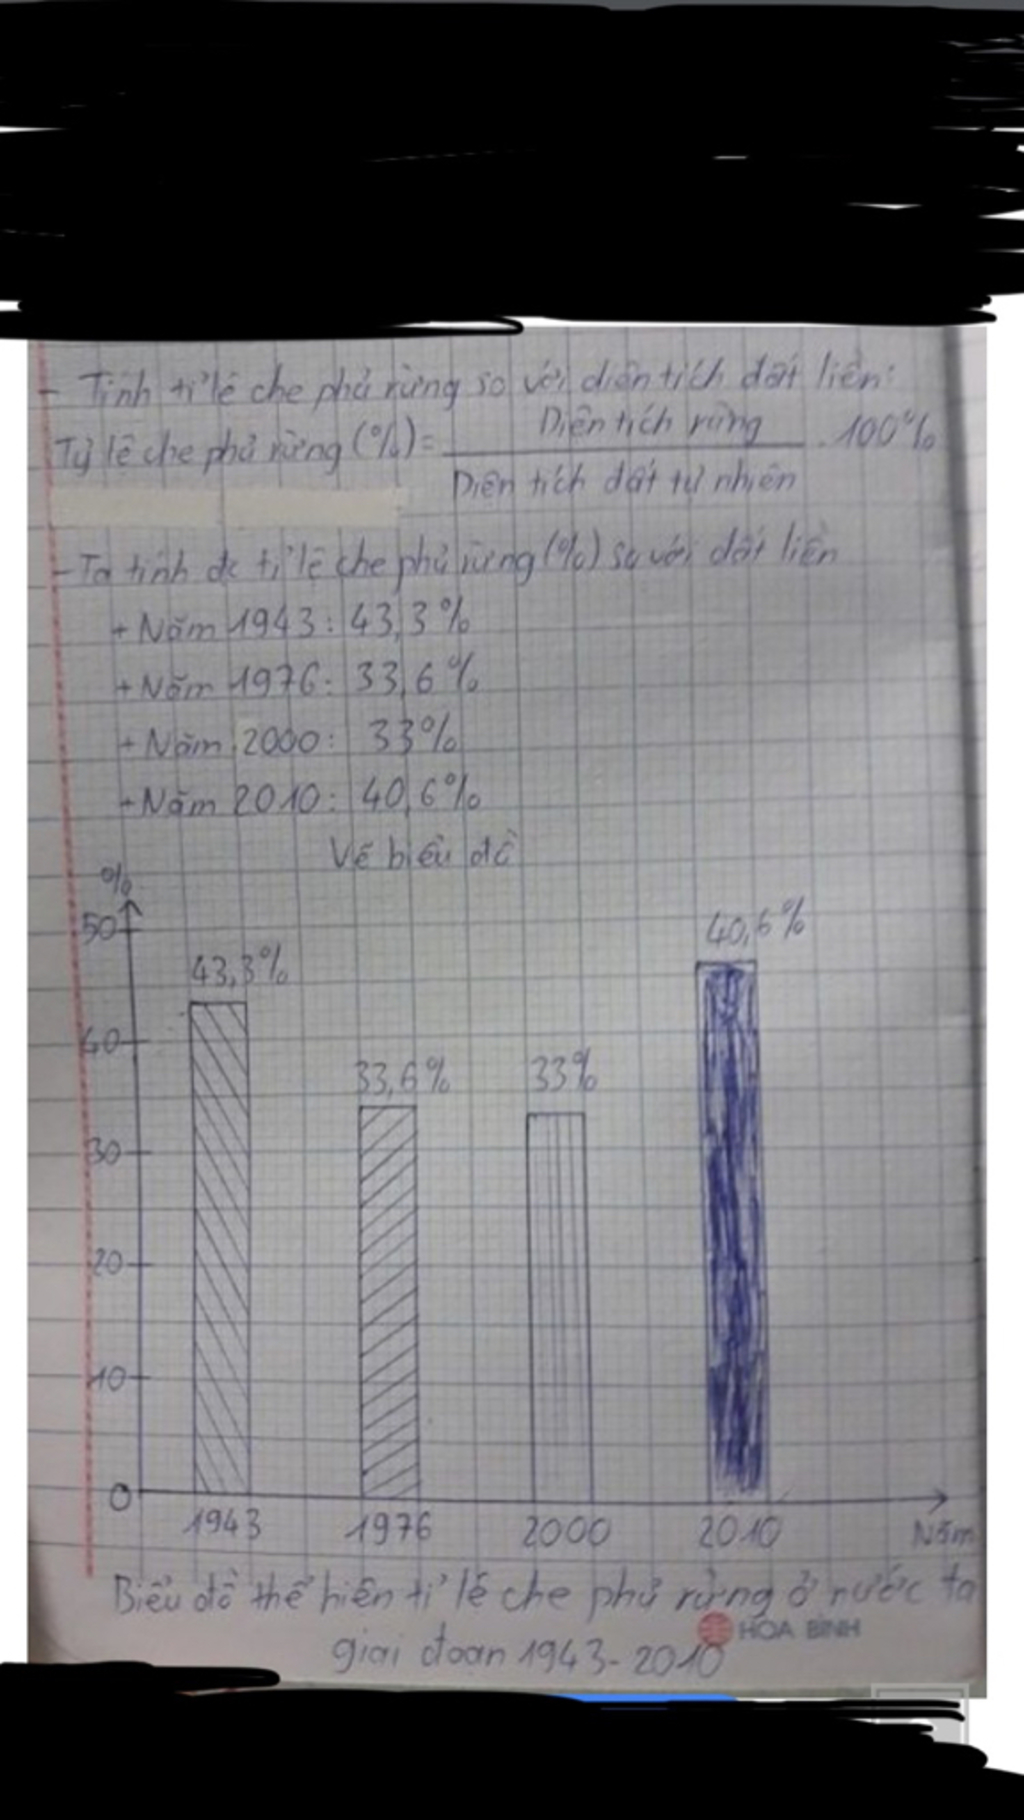 - Tính tỉ lệ che phủ rừng so với diện tích đất liền:
Tỷ lệ che phủ rừng (%) = Diện tích rừng / Diện tích đất tự nhiên . 100%
- Ta tính đc tỉ lệ che phủ rừng (%) so với đất liền
+ Năm 1943: 43,3%
+ Năm 1976: 33,6%
+ Năm 2000: 33%
+ Năm 2010: 40,6%
Vẽ biểu đồ
%
50
40
30
20
10
0
43,3%
33,6%
33%
40,6%
1943
1976
2000
2010
Năm
Biểu đồ thể hiện tỉ lệ che phủ rừng ở nước ta
giai đoạn 1943-2010
HÒA BÌNH